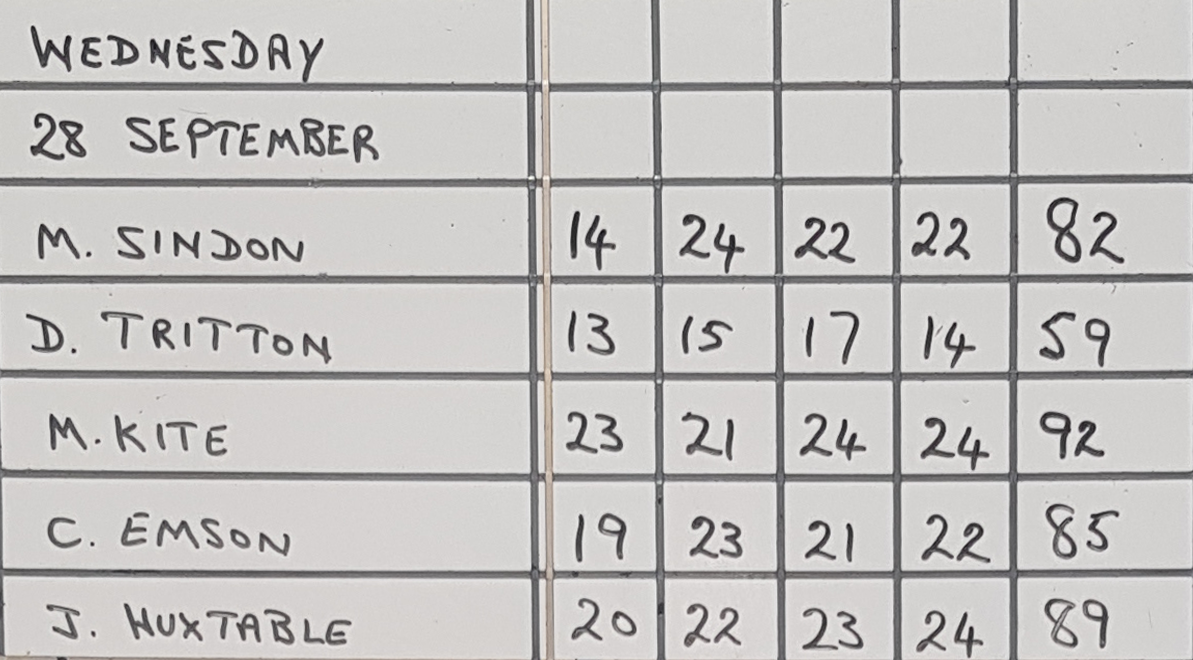 WEDNESDAY
28 SEPTEMBER
M. SINDON 14 24 22 22 82
D. TRITTON 13 15 17 14 59
M. KITE 23 21 24 24 92
C. EMSON 19 23 21 22 85
J. HUXTABLE 20 22 23 24 89